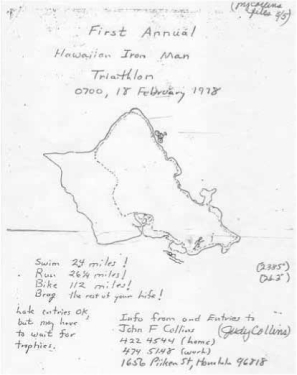 (my Collins
files 45)
First Annual
Hawaiian Iron Man
Triathlon
0700, 18 February 1978
Swim 2.4 miles!
Run 26¼ miles!
Bike 112 miles!
Brag the rest of your life!
late entries OK,
but may have
to wait for
trophies.
(2385)
(26.5)
Info from and Entries to
John F Collins (Judy Collins)
422 4544 (home)
474 5148 (work)
Honolulu 96818